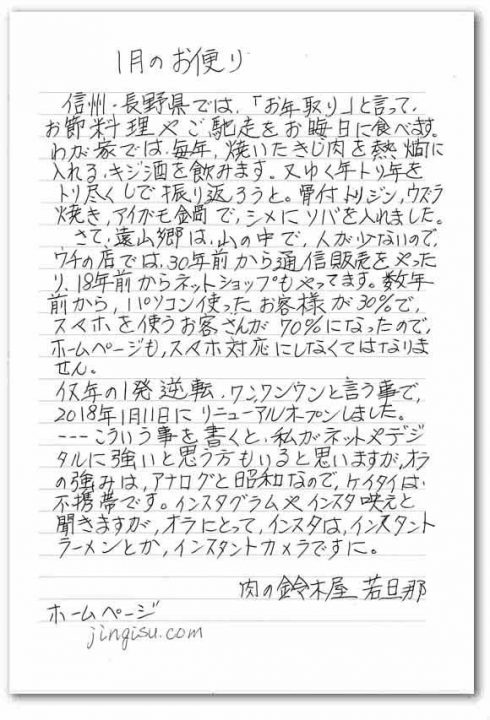 1月のお便り
信州・長野県では、「お年取り」と言って、
お節料理やご馳走をお晦日に食べます。
わが家では、毎年、焼いたきじ肉を熱燗に
入れる、キジ酒を飲みます。又ゆく年トリ年を
トリ尽くしで振り返ろうと。骨付トリジン、ウズラ
焼き、アイガモ鍋で、シメにソバを入れました。
さて、遠山郷は、山の中で、人が少ないので、
ウチの店では、30年前から通信販売をやった
り、18年前からネットショップもやってます。数年
前から、パソコン使ったお客様が30%で、
スマホを使うお客さんが70%になったので、
ホームページも、スマホ対応にしなくてはなりま
せん。
戌年の1発逆転、ワンワンワンと言う事で、
2018年1月11日にリニューアルオープンしました。
---こういう事を書くと、私がネットやデジ
タルに強いと思う方もいると思いますが、オラ
の強みは、アナログと昭和なので、ケイタイは、
不携帯です。インスタグラムやインスタ映えと
聞きますが、オラにとって、インスタは、インスタント
ラーメンとか、インスタントカメラですに。
肉の鈴木屋 若旦那
ホームページ
jingisu.com